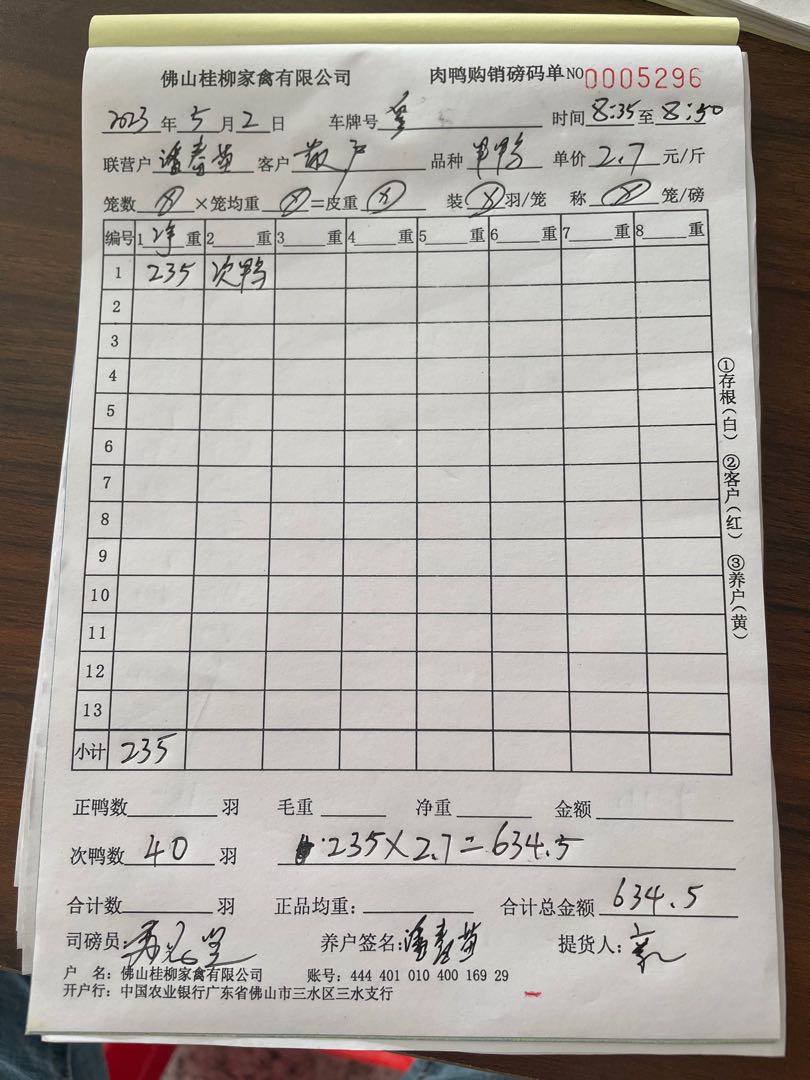 佛山桂柳家禽有限公司 肉鸭购销磅码单 NO 0005296
2023 年 5 月 2 日 车牌号 时间 8:35 至 8:50
联营户 潘春苗 客户 散户 品种 单价 2.7 元/斤
笼数 × 笼均重 = 皮重 装 羽/笼 称 笼/磅
编号 1 净 重 2 重 3 重 4 重 5 重 6 重 7 重 8 重
1 235 次鸭
2
3
4
5
6
7
8
9
10
11
12
13
小计 235
正鸭数 羽 毛重 净重 金额
次鸭数 40 羽 235×2.7=634.5
合计数 羽 正品均重: 合计总金额 634.5
司磅员: 养户签名: 潘春苗 提货人:
户 名: 佛山桂柳家禽有限公司 账号: 444 401 010 400 169 29
开户行: 中国农业银行广东省佛山市三水区三水支行
①存根(白) ②客户(红) ③养户(黄)